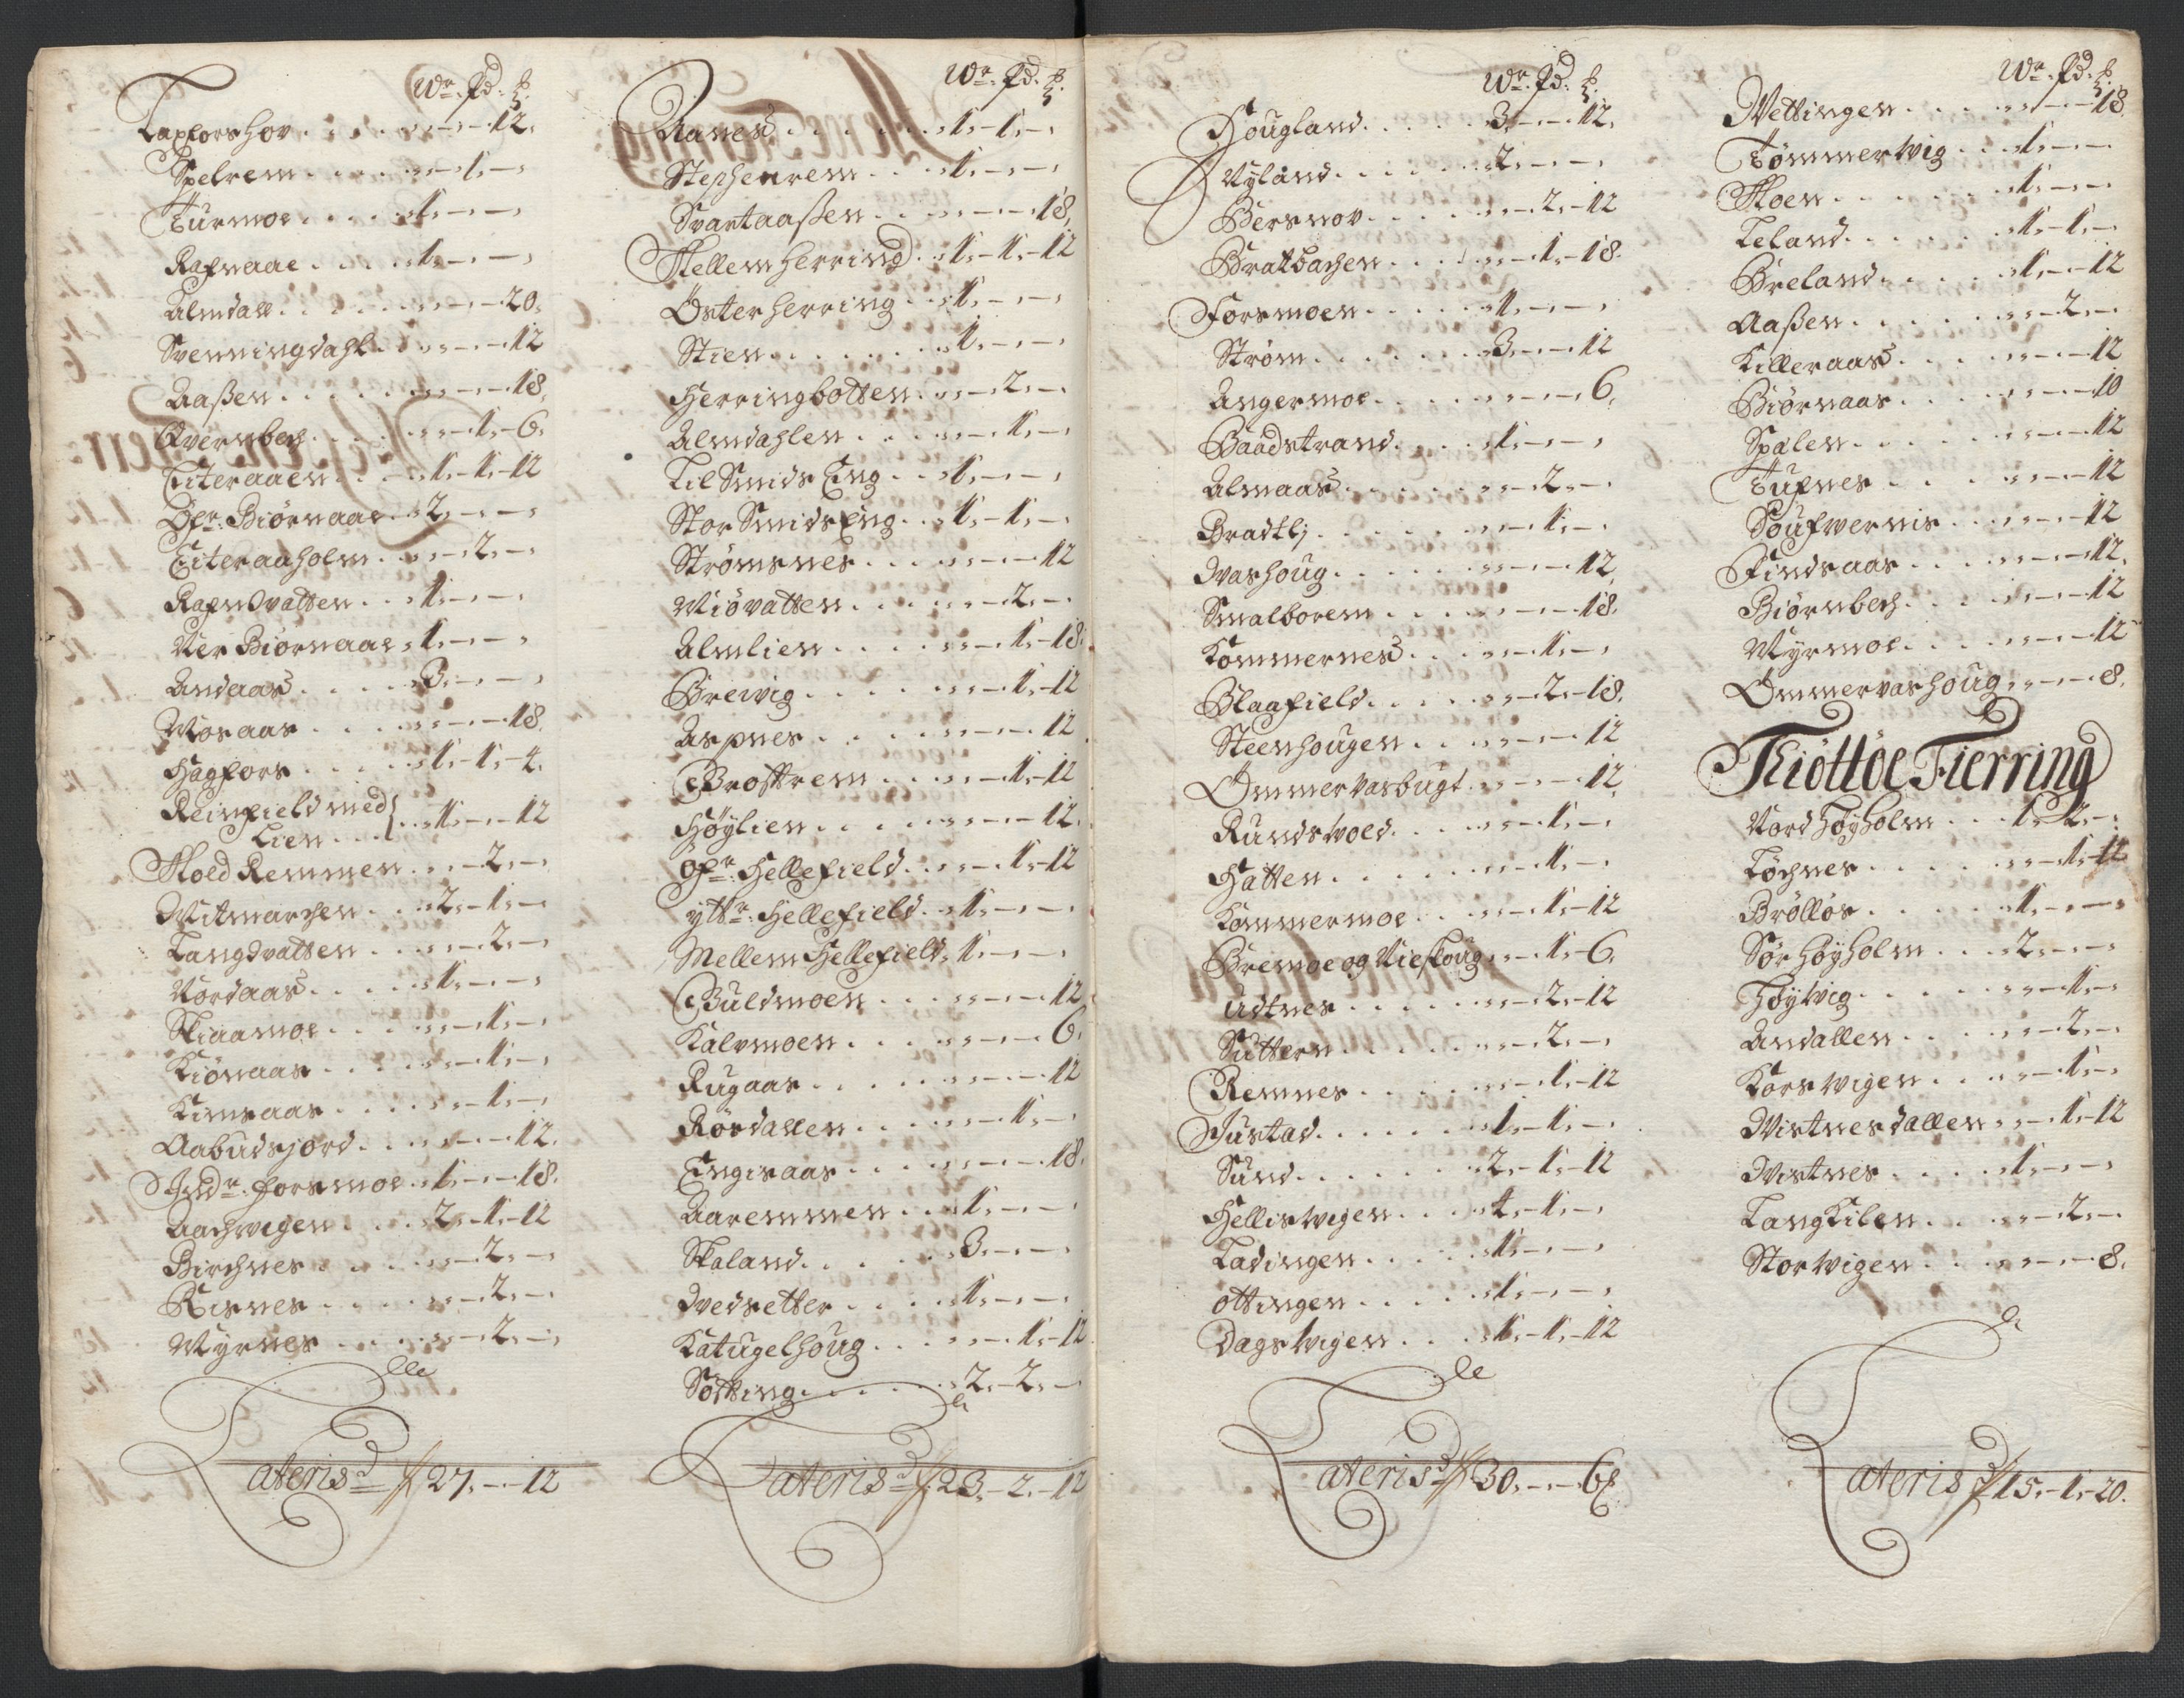 Wr. Pd. ß.
Laxfors hov . . . . „ - „ - 12.
Spelrem . . . . „ - 1. - „
Turmoe . . . . 1. - „ - „
Rafnaae . . . . 1. - „ - „
Almdall . . . . „ - „ - 20.
Svenningdahl . . „ - „ - 12
Aaßen . . . . „ - „ - 18.
Qvernbech . . . . „ - 1. - 6.
Eiteraaen . . . 1. - 1. - 12
Øfr: Biørnaae . . 2. - „ - „
Eiteraaholm . . „ - 2. - „
Rafnsvatten . . 1. - „ - „
Ner Biørnaae . 1. - „ - „
Andaas . . . . 3. - „ - „
Mosaas . . . . „ - „ - 18.
Hagfors . . . . 1. - 1. - 4.
Reinfield med
Lien . . } . . 1. - „ - 12
Skoed Remmen . . „ - 2. - „
Witmarchen . . 2. - 1. - „
Langsvatten . . „ - 2. - „
Nordaas . . . . 1. - „ - „
Skiaamoe . . . „ - 1. - „
Kiønaas . . . . „ - 1. - „
Kimsaas . . . . „ - 1. - „
Aabudsjord . . . „ - „ - 12.
Indr. Forsmoe . . 1. - „ - 18.
Aachvigen . . . 2. - 1. - 12
Birchnes . . . . „ - 2. - „
Risnes . . . . „ - 2. - „
Myrnes . . . . „ - 2. - „
Lateris 27. - „ - 12
Wr. Pd. ß.
Ranes . . . . 1. - 1. - „
Stephenrem . . . 1. - „ - „
Svartaaßen . . . „ - „ - 18.
Mellem herring . 1. - 1. - 12
Østerherring . . 1. - „ - „
Stien . . . . . 1. - „ - „
Herringbotten . „ - 2. - „
Almdahlen . . . „ - 1. - „
Lil Smids Eng . . 1. - „ - „
Stor Smids Eng . 1. - 1. - „
Strømsnes . . . „ - „ - 12
Miøvatten . . . „ - 2. - „
Almlien . . . . „ - 1. - 18.
Breivig . . . . „ - 1. - 12
Aspnes . . . . „ - „ - 12
Brostrem . . . „ - 1. - 12
Høylien . . . . „ - „ - 12.
Øfr: Hellefield . „ - 1. - 12
yttr: Hellefield . 1. - „ - „
Mellem Hellefield . 1. - „ - „
Buldmoen . . . „ - „ - 12
Kalvmoen . . . „ - „ - 6.
Rugaas . . . . „ - „ - 12
Rørdallen . . . „ - 1. - „
Engisaas . . . . „ - „ - 18.
Aaremmen . . . 1. - „ - „
Skaland . . . . 3. - „ - „
Dvedsetter . . . 1. - „ - „
Katugelhoug . . „ - 1. - 12
Søtting . . . . 2. - 2. - „
Lateris 23. - 2. - 12
Wr. Pd. ß.
Hougland . . . . 3. - „ - 12.
Nyland . . . . 2. - „ - „
Bersnov . . . . „ - 2. - 12
Bratbachen . . . „ - 1. - 18.
Forsmoen . . . . 1. - „ - „
Strøm . . . . . 3. - „ - 12
Angermoe . . . . „ - „ - 6.
Baadstrand . . . 1. - „ - „
Almaas . . . . „ - 2. - „
Bradtlj . . . . „ - 1. - „
Dvashoug . . . . „ - „ - 12
Smalborem . . . „ - „ - 18.
Kommernes . . . „ - 1. - „
Blaafield . . . . „ - 2. - 18.
Steenhougen . . „ - „ - 12
Ømmervasbugt . „ - „ - 12.
Rundsvoed . . . „ - 1. - „
Hatten . . . . „ - 1. - „
Kommermoe . . „ - 1. - 12
Bremoe og Vieskoug . „ - 1. - 6.
Udtnes . . . . „ - 2. - 12
Suttern . . . . „ - 2. - „
Remnes . . . . „ - 1. - 12
Justad . . . . 1. - 1. - „
Sund . . . . . 2. - 1. - 12
Hellisvigen . . . 4. - 1. - „
Ladingen . . . . 1. - „ - „
Ottingen . . . . 1. - „ - „
Dagsvigen . . . 1. - 1. - 12
Lateris 30. - „ - 6ß.
Wr. Pd. ß.
Wettingen . . . „ - „ - 18.
Tømmervig . . . 1. - „ - „
Moen . . . . . 1. - „ - „
Leland . . . . 1. - 1. - „
Breland . . . . 1. - „ - 12
Aaßen . . . . . „ - 2. - „
Killeraas . . . . „ - „ - 12
Biørnaas . . . . „ - „ - 10
Spalen . . . . „ - „ - 12
Tufnes . . . . „ - „ - 12
Soufvernis . . . „ - „ - 12
Findsaas . . . . „ - „ - 12.
Biørnbech . . . „ - „ - 12
Myrmoe . . . . „ - „ - 12
Ømmervashoug . „ - „ - 8.
Thiøttøe Fierring
Nord Høyholm . . 1. - 2. - „
Tøchnes . . . . „ - 1. - 12
Brølløs . . . . 1. - „ - „
Sør høyholm . . 2. - „ - „
Høyvig . . . . „ - 1. - „
Andallen . . . . „ - 2. - „
Korsvigen . . . „ - 1. - „
Wistnesdallen . „ - 1. - 12
Dvistnes . . . . 1. - „ - „
Langkilen . . . „ - 2. - „
Storvigen . . . „ - „ - 8.
Lateris 15. - 1. - 20.